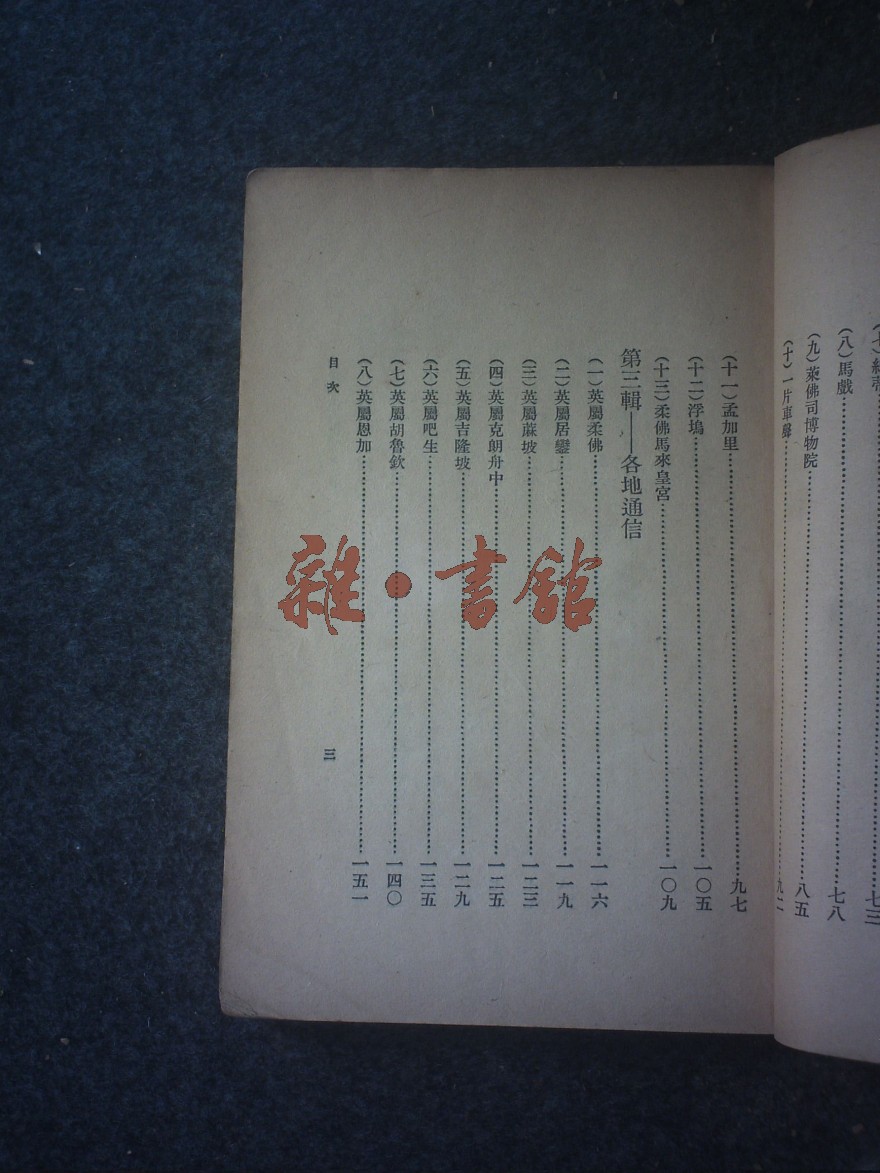 七三
（八）馬戲……七八
（九）萊佛司博物院……八五
（十）一片車聲……九二
（十一）孟加里……九七
（十二）浮塢……一〇五
（十三）柔佛馬來皇宮……一〇九
第三輯——各地通信
（一）英屬柔佛……一一六
（二）英屬居鑾……一一九
（三）英屬蔴坡……一二三
（四）英屬克朗舟中……一二五
（五）英屬吉隆坡……一二九
（六）英屬吧生……一三五
（七）英屬胡魯欽……一四〇
（八）英屬恩加……一五一
目次
三
雜·書館